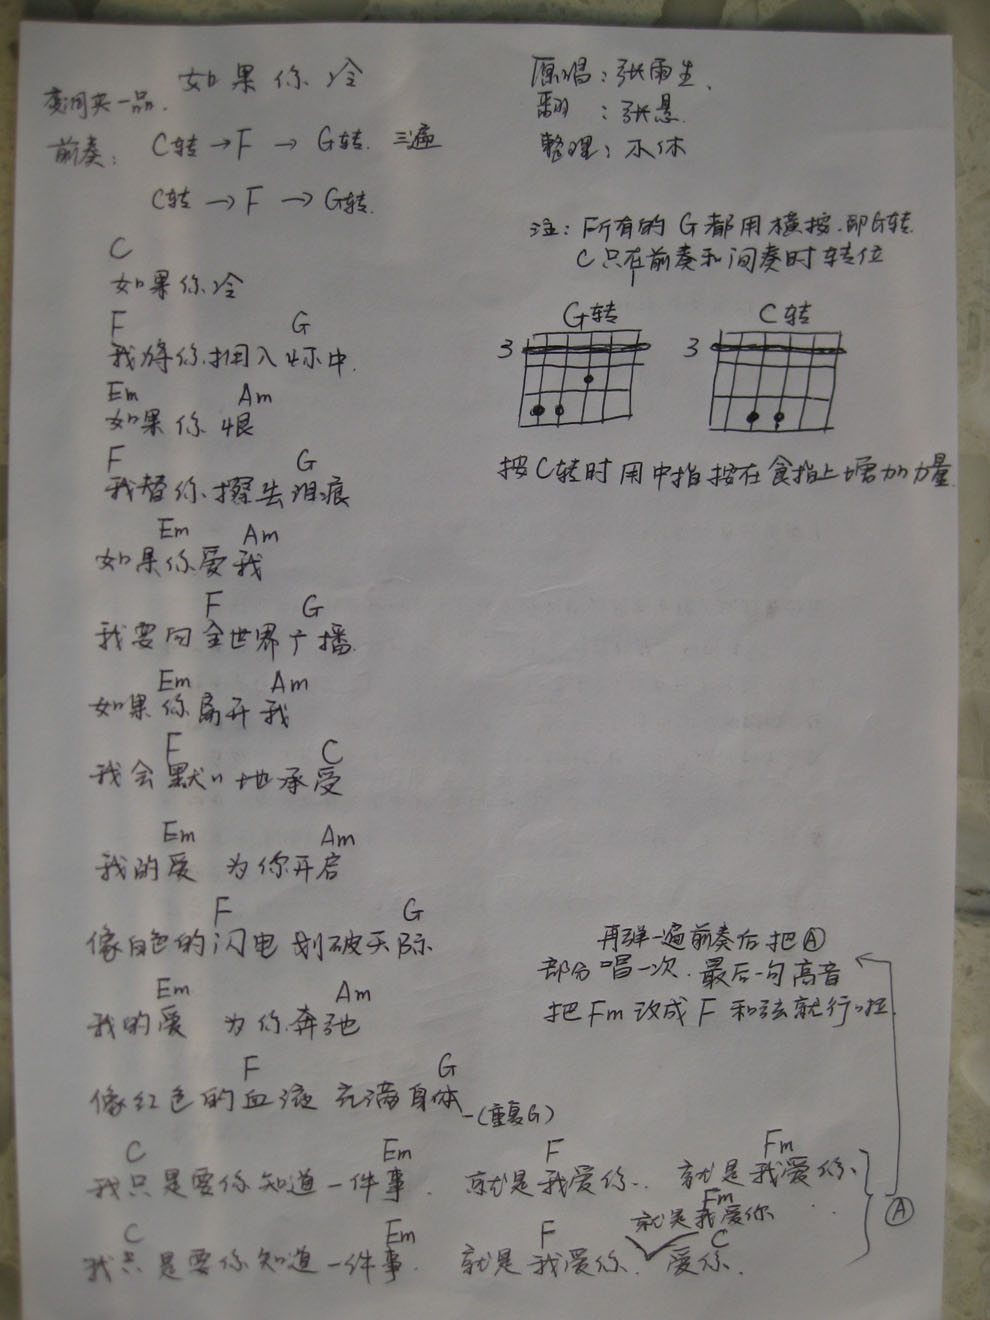 如果你冷
变调夹一品.
前奏: C转→F → G转. 三遍
C转→F →G转.
原唱:张雨生.
翻 :张悬.
整理:木休
注: 所有的 G 都用横按.即G转
C只在前奏和间奏时转位
G转
3
C转
3
按C转时用中指按在食指上增加力量.
C
如果你冷
F G
我将你拥入怀中.
Em Am
如果你 恨
F G
我替你擦去泪痕
Em Am
如果你爱我
F G
我要向全世界广播
Em Am
如果你离开我
F C
我会默〃地承受
Em Am
我的爱 为你开启
F G
像白色的闪电 划破天际
Em Am
我的爱 为你奔驰
F G
像红色的血液 充满身体
-(重复G)
C Em F Fm
我只是要你知道一件事. 就是我爱你.. 就是我爱你.
Fm
就是我爱你
C Em F C
我只是要你知道一件事. 就是我爱你. 爱你.
Ⓐ
再弹一遍前奏后把Ⓐ
部分唱一次. 最后一句高音
把Fm改成 F 和弦就行啦.